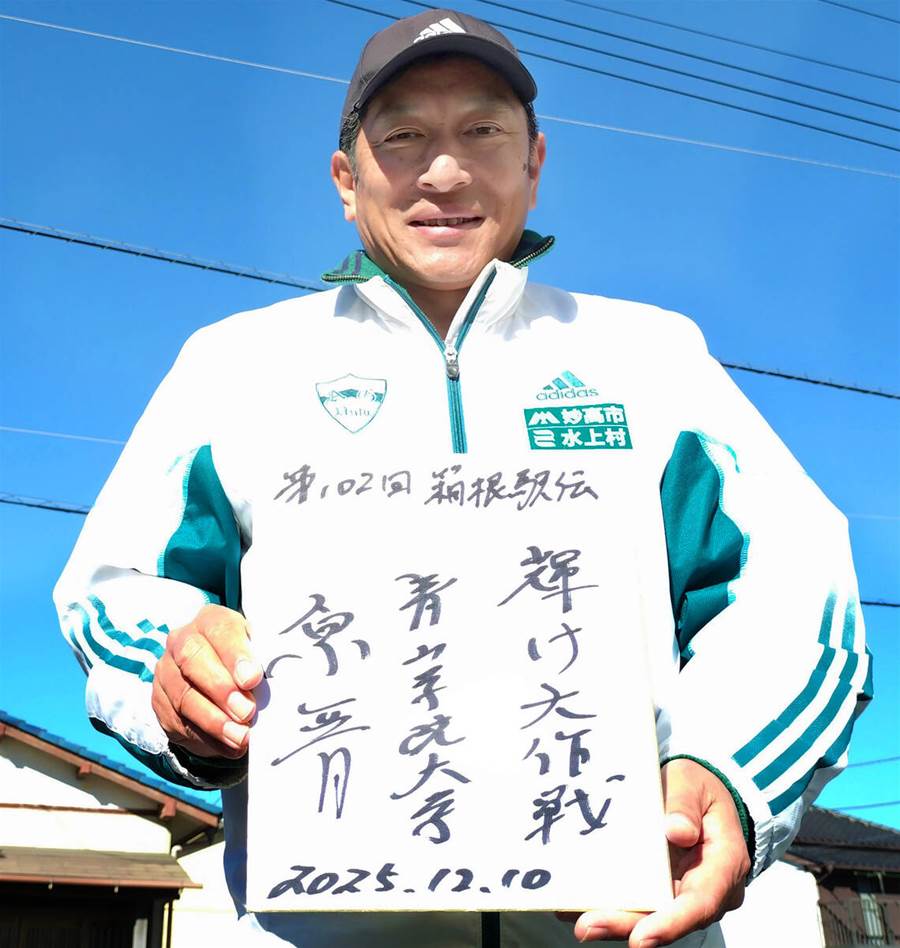 adidas
妙高市
水上村
第102回 箱根駅伝
輝け大作戦
青山学院大学
原晋
2025.12.10